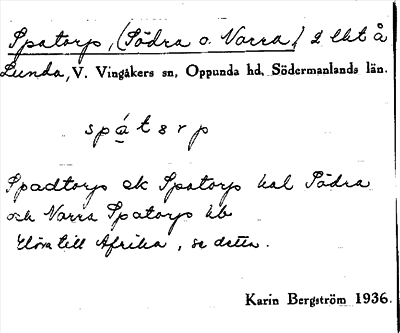 Spatorp, (Södra o. Norra) 2 lht å
Lunda, V. Vingåkers sn, Oppunda hd, Södermanlands län.
spátsrp
Spadtorp ek Spatorp hal Södra
och Norra Spatorp hb
Höra till Afrika, se detta.
Karin Bergström 1936.